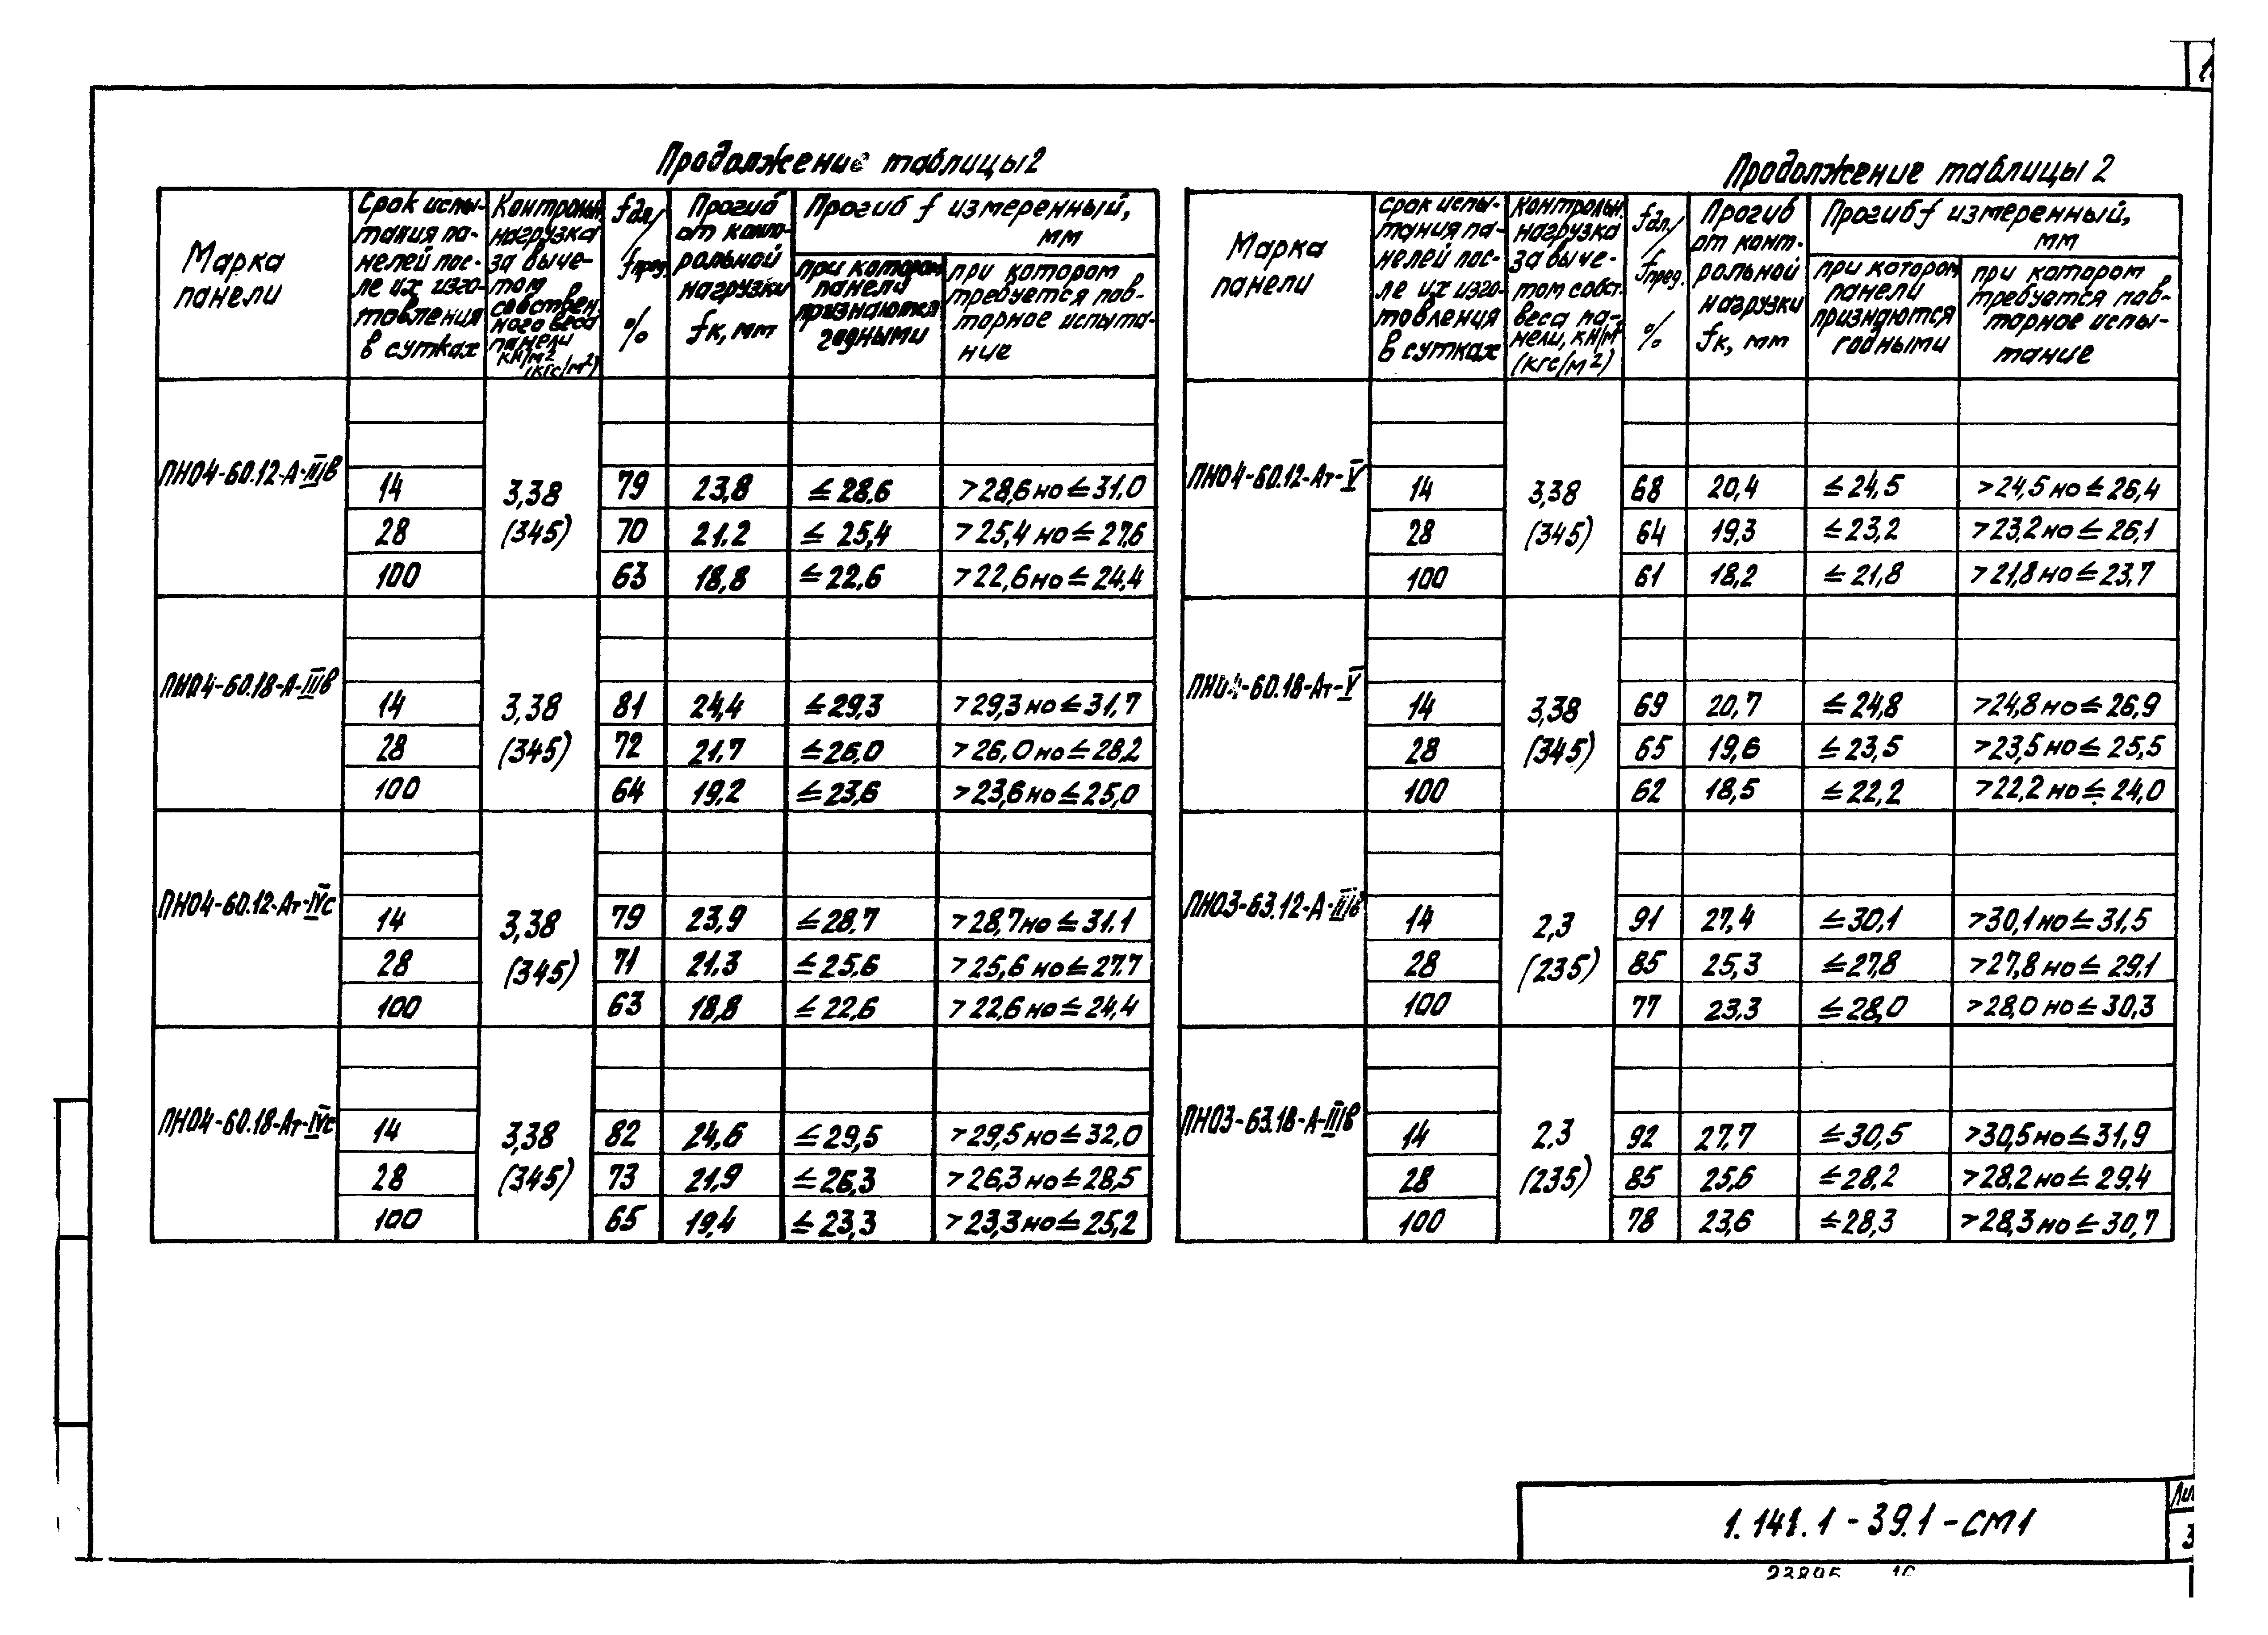 1
Продолжение таблицы 2
Марка панели
Срок испытания панелей после их изготовления в сутках
Контрольн. нагрузка за вычетом собственного веса панели кН/м² (кгс/м²)
fдл/fпред. %
Прогиб от контрольной нагрузки fк, мм
Прогиб f измеренный, мм
при котором панели признаются годными
при котором требуется повторное испытание
ПНО4-60.12-А-IIIв 3,38 (345)
14 79 23,8 ≤28,6 >28,6 но ≤31,0
28 70 21.2 ≤25,4 >25,4 но ≤27,6
100 63 18,8 ≤22,6 >22,6 но ≤24,4
ПНО4-60.18-А-IIIв 3,38 (345)
14 81 24,4 ≤29,3 >29,3 но ≤31.7
28 72 21,7 ≤26,0 >26,0 но ≤28,2
100 64 19,2 ≤23,6 >23,6 но ≤25,0
ПНО4-60.12-Ат-IVс 3,38 (345)
14 79 23,9 ≤28,7 >28,7 но ≤31.1
28 71 21.3 ≤25,6 >25,6 но ≤27.7
100 63 18,8 ≤22,6 >22,6 но ≤24,4
ПНО4-60.18-Ат-IVс 3,38 (345)
14 82 24,6 ≤29,5 >29,5 но ≤32,0
28 73 21,9 ≤26,3 >26,3 но ≤28,5
100 65 19,4 ≤23,3 >23,3 но ≤25,2
Продолжение таблицы 2
Марка панели
Срок испытания панелей после их изготовления в сутках
Контрольн. нагрузка за вычетом собст. веса панели, кН/м² (кгс/м²)
fдл./fпред. %
Прогиб от контрольной нагрузки fк, мм
Прогиб f измеренный, мм
при котором панели признаются годными
при котором требуется повторное испытание
ПНО4-60.12-Ат-V 3,38 (345)
14 68 20,4 ≤24,5 >24,5 но ≤26,4
28 64 19,3 ≤23,2 >23,2 но ≤26,1
100 61 18,2 ≤21,8 >21,8 но ≤23,7
ПНО4-60.18-Ат-V 3,38 (345)
14 69 20,7 ≤24,8 >24,8 но ≤26,9
28 65 19,6 ≤23,5 >23,5 но ≤25,5
100 62 18,5 ≤22,2 >22,2 но ≤24,0
ПНО3-63.12-А-IIIв 2,3 (235)
14 91 27,4 ≤30,1 >30,1 но ≤31,5
28 85 25,3 ≤27,8 >27,8 но ≤29,1
100 77 23,3 ≤28,0 >28,0 но ≤30,3
ПНО3-63.18-А-IIIв 2.3 (235)
14 92 27.7 ≤30,5 >30,5 но ≤31,9
28 85 25,6 ≤28,2 >28,2 но ≤29,4
100 78 23,6 ≤28,3 >28,3 но ≤30,7
1.141.1-39.1-СМ1
3
23895